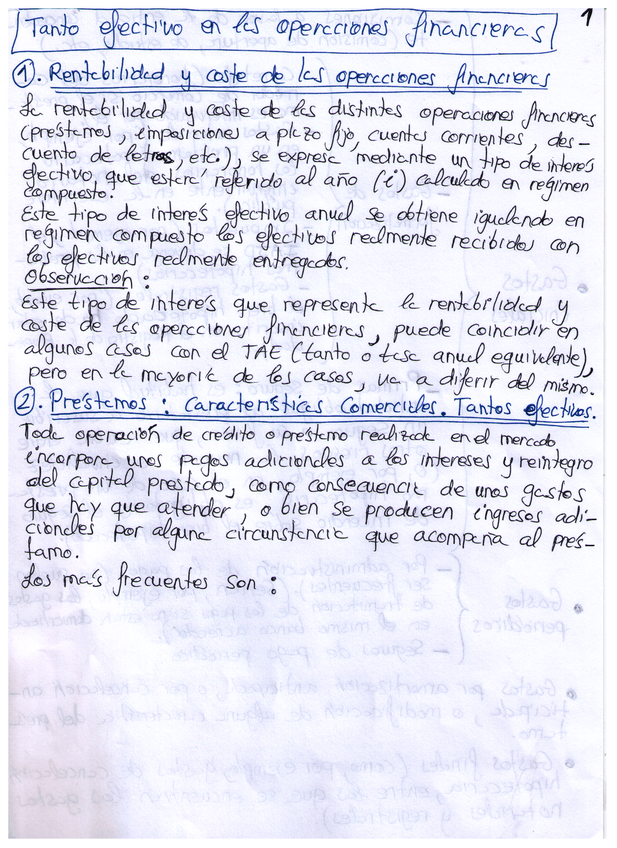 1
Tanto efectivo en las operaciones financieras
1. Rentabilidad y coste de las operaciones financieras
La rentabilidad y coste de las distintas operaciones financieras
(préstamos, imposiciones a plazo fijo, cuentas corrientes, des-
cuento de letras, etc.), se expresa mediante un tipo de interés
efectivo, que estará referido al año (i) calculado en régimen
compuesto.
Este tipo de interés efectivo anual se obtiene igualando en
régimen compuesto los efectivos realmente recibidos con
los efectivos realmente entregados.
Observación :
Este tipo de interés que representa la rentabilidad y
coste de las operaciones financieras, puede coincidir en
algunos casos con el TAE (tanto o tasa anual equivalente),
pero en la mayoría de los casos va a diferir del mismo.
2. Préstamos : características comerciales. Tantos efectivos.
Toda operación de crédito o préstamo realizada en el mercado
incorpora unos pagos adicionales a los intereses y reintegro
del capital prestado, como consecuencia de unos gastos
que hay que atender, o bien se producen ingresos adi-
cionales por alguna circunstancia que acompaña al prés-
tamo.
Los más frecuentes son :